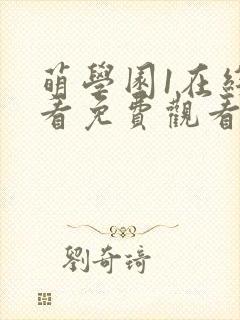 萌學園1在線
看免費觀看
劉奇琦